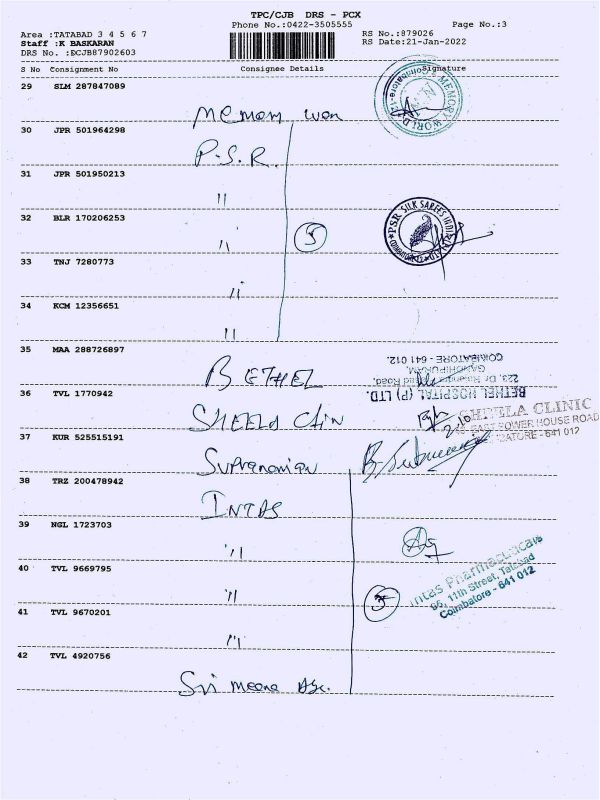 TPC/CJB DRS - PCX
Phone No.:0422-3505555
Page No.:3
Area :TATABAD 3 4 5 6 7
RS No.:879026
Staff :K BASKARAN
RS Date:21-Jan-2022
DRS No. :ECJB87902603
S No Consignment No Consignee Details Signature
29 SLM 287847089
MEMORY WORLD
Coimbatore-12
30 JPR 501964298
P.S.R.
31 JPR 501950213
"
32 BLR 170206253
" 5
PSR SILK SAREES INDIA
33 TNJ 7280773
"
34 KCM 12356651
"
35 MAA 288726897
BETHEL
BETHEL HOSPITAL (P) LTD.
223, Dr. Road,
GANDHIPURAM,
COIMBATORE - 641 012.
36 TVL 1770942
SHEELA
SHEELA CLINIC
EAST POWER HOUSE ROAD
COIMBATORE - 641 012
37 KUR 525515191
38 TRZ 200478942
INTAS
39 NGL 1723703
"
40 TVL 9669795
" 5
Intas Pharmaceuticals
95, 11th Street, Tatabad
Coimbatore - 641 012
41 TVL 9670201
"
42 TVL 4920756
Sri Meena